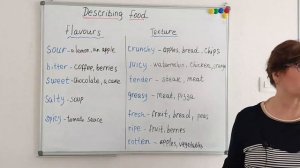 Describing food
Flavours
Texture
sour - a lemon, an apple
crunchy - apples, bread, chips
bitter - coffee, berries
juicy - watermelon, chicken, orange
sweet - chocolate, a cake
tender - steak, meat
salty - soup
greasy - meat, pizza
spicy - tomato sauce
fresh - fruit, bread, peas
ripe - fruit, berries
rotten - apples, vegetables